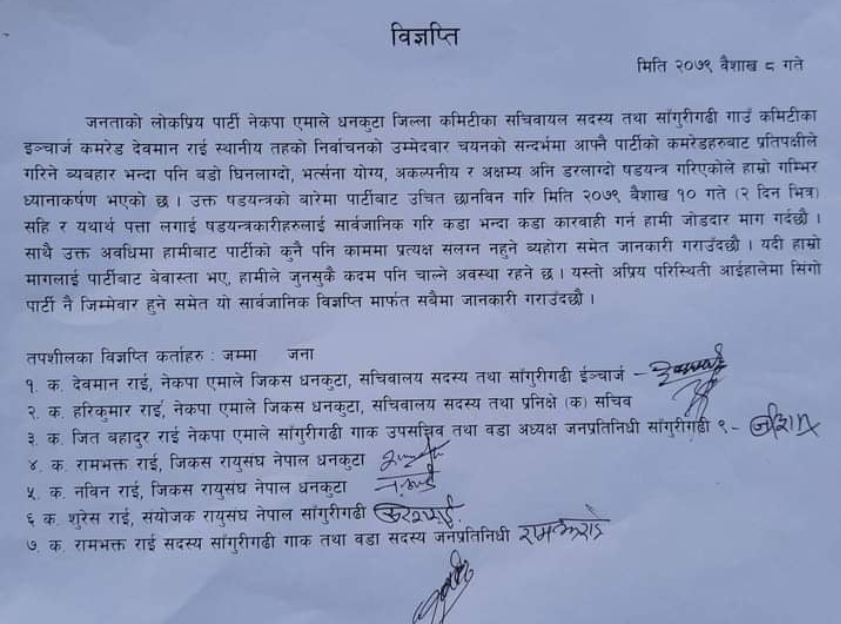 विज्ञप्ति
मिति २०७९ वैशाख ८ गते
जनताको लोकप्रिय पार्टी नेकपा एमाले धनकुटा जिल्ला कमिटीका सचिवायल सदस्य तथा साँगुरीगढी गाउँ कमिटीका
इञ्चार्ज कमरेड देवमान राई स्थानीय तहको निर्वाचनको उम्मेदवार चयनको सन्दर्भमा आफ्नै पार्टीको कमरेडहरुबाट प्रतिपक्षीले
गरिने ब्यबहार भन्दा पनि बडो घिनलाग्दो, भर्त्सना योग्य, अकल्पनीय र अक्षम्य अनि डरलाग्दो षडयन्त्र गरिएकोले हाम्रो गम्भिर
ध्यानाकर्षण भएको छ । उक्त षडयन्त्रको बारेमा पार्टीबाट उचित छानविन गरि मिति २०७९ बैशाख १० गते (२ दिन भित्र)
सहि र यथार्थ पत्ता लगाई षडयन्त्रकारीहरुलाई सार्वजानिक गरि कडा भन्दा कडा कारवाही गर्न हामी जोडदार माग गर्दछौ ।
साथै उक्त अवधिमा हामीबाट पार्टीको कुनै पनि काममा प्रत्यक्ष सलग्न नहुने ब्यहोरा समेत जानकारी गराउँदछौ । यदी हाम्रो
मागलाई पार्टीबाट बेवास्ता भए, हामीले जुनसुकै कदम पनि चाल्ने अवस्था रहने छ । यस्तो अप्रिय परिस्थिती आईहालेमा सिंगो
पार्टी नै जिम्मेवार हुने समेत यो सार्वजानिक विज्ञप्ति मार्फत सबैमा जानकारी गराउँदछौ ।
तपशीलका विज्ञप्ति कर्ताहरु : जम्मा जना
१. क. देवमान राई, नेकपा एमाले जिकस धनकुटा, सचिवालय सदस्य तथा साँगुरीगढी ईञ्चार्ज –
२. क. हरिकुमार राई, नेकपा एमाले जिकस धनकुटा, सचिवालय सदस्य तथा प्रनिक्षे (क) सचिव
३. क. जित बहादुर राई नेकपा एमाले साँगुरीगढी गाक उपसचिव तथा वडा अध्यक्ष जनप्रतिनिधी साँगुरीगढी ९–
४. क. रामभक्त राई, जिकस रायुसंघ नेपाल धनकुटा
५. क. नबिन राई, जिकस रायुसंघ नेपाल धनकुटा
६ क. शुरेस राई, संयोजक रायुसंघ नेपाल साँगुरीगढी
७. क. रामभक्त राई सदस्य साँगुरीगढी गाक तथा वडा सदस्य जनप्रतिनिधी